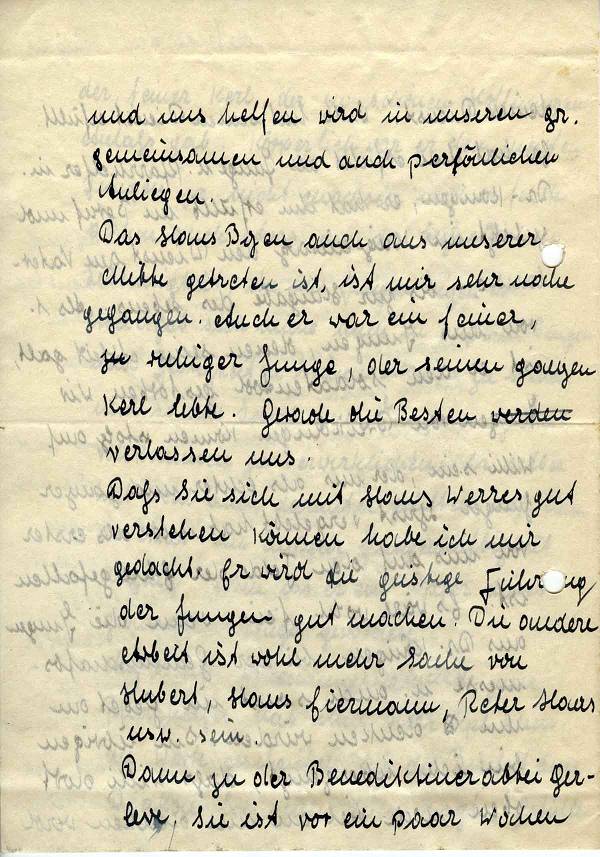 und uns helfen wird in unseren gr.
gemeinsamen und auch persönlichen
Anliegen.
Das Hans Bojen auch aus unserer
Mitte getreten ist, ist mir sehr nahe
gegangen. Auch er war ein feiner,
zu ruhiger Junge, der seinen ganzen
Kerl lebte. Gerade die Besten werden
verlassen uns.
Daß Sie sich mit Hans Werres gut
verstehen können habe ich mir
gedacht. Er wird die geistige Führung
der Jungen gut machen. Die andere
Arbeit ist wohl mehr Sache von
Hubert, Hans Liermann, Peter Haas
usw. sein.
Dann zu der Benediktinerabtei Ger-
leve. Sie ist vor ein paar Wochen